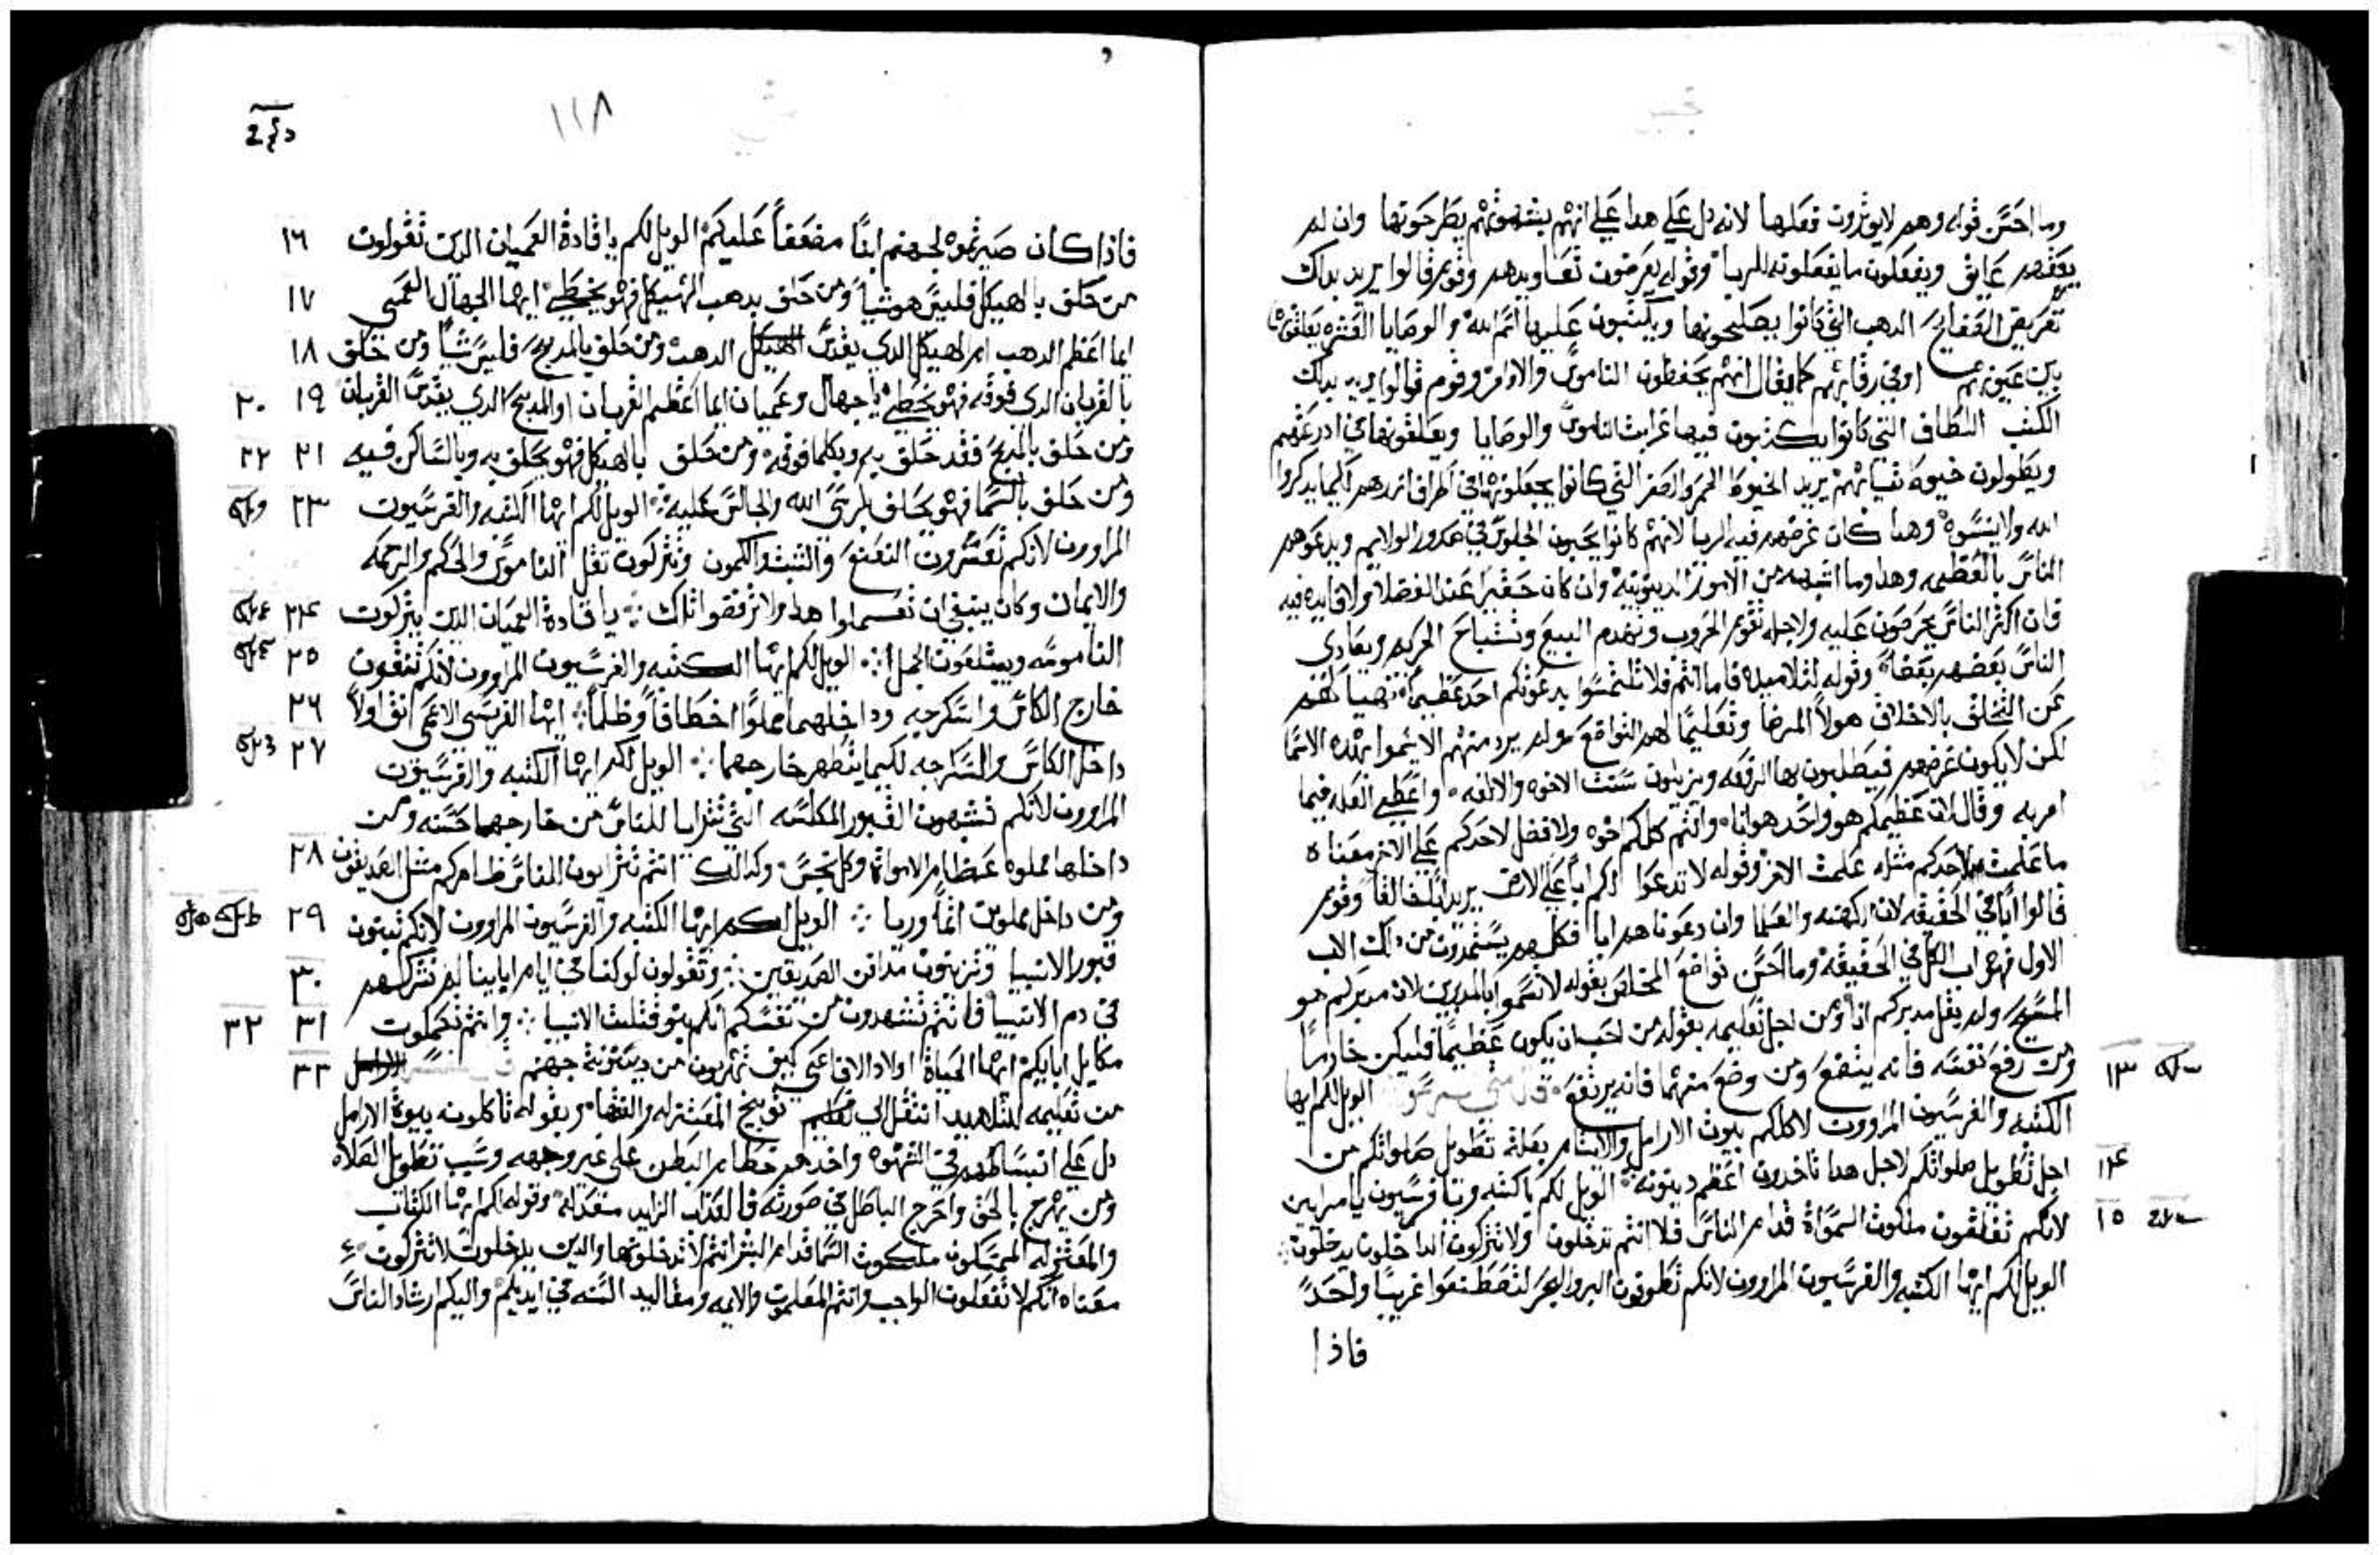 وما احسن قوله وهم لايوثرون تعلها لانه دل علي هدا علي انهم يطرحونها وان لم
يعقهم عايق ويفعلون مايفعلونه للريا وقوله يعرضون تعاويدهم وقوم قالوا يريد بداك
الدهب التي كانوا يصلحونها ويكتبون عليها اسم الله والوصايا العشره يعلقونها
بين عينيهم او في رقابهم كما يقال انهم يحفظون الناموس والاوامر وقوم قالوا يريد بداك
الكتب اللطاف التي كانوا يكتبون فيها غرايب الناموس والوصايا ويعلقونها في ادرعتهم
ويطولون خيوط ثيابهم يريد الخيوط الحمر والصفر التي كانوا يجعلونها في اطراف ازرهم لكيما يدكروا
الله ولا ينسوه وهدا كان غرضهم فيه الريا لانهم كانوا يحبون الجلوس في صدور الولايم ويدعوهم
الناس بالعظمه وهدا وما اشبهه من الامور الدنيونية وان كان حقيرا عند الفضلا ولا فايده فيه
فان اكثر الناس يحرصون عليه ولاجله تقوم الحروب وتهدم البيع وتستباح الحريم ويعادي
الناس بعضهم بعضا وقوله لتلاميده فاما انتم فلا تلتمسوا يدعونكم احد عظيما نهيا لهم
عن التخلق بالاخلاق هولا المرضا وتعليما لهم التواضع ولم يرد منهم الا يسموا بهده الاسما
لكن لا يكون غرضهم فيطلبون بها الرفعه ويزيلون سنت الاخوه والالفه واعطي العله فيما
امر به وقال لان عظيمكم هو واحد هو انا وانتم كلكم اخوه ولا فضل لاحدكم علي الاخر معناه
ما علمت لاحدكم مثله علمت الاخر وقوله لا تدعوا لكم ابا علي الارض يريد وقوم
قالوا ابا في الحقيقه لان الكهنه والعلما وان دعوناهم ابا فكلهم يستمدون من داك الاب
الاول فهو اب الكل في الحقيقه وما احسن تواضع المخلص بقوله لا تسموا بالمدبرين لان مدبركم هو
المسيح ولم يقل مدبركم انا ومن اجل تعليمه بقوله من احب ان يكون عظيما فليكن خادما
١٣ ومن رفع نفسه فانه يتضع ومن وضع منهم فانه يرتفع قال الويل لكم ايها
الكتبه والفرسيون المراوون لاكلكم بيوت الارامل والايتام بعلة تطويل صلواتكم من
١٤ اجل تطويل صلواتكم لاجل هدا تاخدون اعظم دينونه الويل لكم يا كتبه ويا فرسيون يا مرايين
١٥ لانكم تغلقون ملكوت السموات قدام الناس فلا انتم تدخلون ولا تتركون الداخلون يدخلون
الويل لكم ايها الكتبه والفرسيون المراوون لانكم تطوفون البر والبحر لتصطنعوا غريبا واحدا
فاذا
١١٨
فاذا كان صيرتموه لجهنم ابنا مضعفا عليكم الويل لكم يا قادة العميان الدين تقولون ١٦
من حلف بالهيكل فليس هو شيا ومن حلف بدهب الهيكل فهو يخطي ايها الجهال العمي ١٧
ايما اعظم الدهب ام الهيكل الدي يقدس الدهب ومن حلف بالمدبح فليس شيا ومن حلف ١٨
بالقربان الدي فوقه فهو يخطي يا جهال وعميان ايما اعظم القربان او المدبح الدي يقدس القربان ١٩ ٢٠
ومن حلف بالمدبح فقد حلف به وبكلما فوقه ومن حلف بالهيكل فهو يحلف به وبالساكن فيه ٢١ ٢٢
ومن حلف بالسما فهو يحلف بكرسي الله والجالس عليه الويل لكم ايها الكتبه والفرسيون ٢٣
المراوون لانكم تعشرون النعنع والشبث والكمون وتتركون ثقل الناموس والحكم والرحمه
والايمان وكان ينبغي ان تعملوا هدا ولا ترفضوا تلك يا قادة العميان الدين يتركون ٢٤
الناموسه ويبتلعون الجمل الويل لكم ايها الكتبه والفرسيون المراوون لانكم تنقون ٢٥
خارج الكاس والسكرجه وداخلهما مملوا اختطافا وظلما ايها الفريسي الاعمي انق اولا ٢٦
داخل الكاس والسكرجه لكيما يتطهر خارجهما الويل لكم ايها الكتبه والفرسيون ٢٧
المراوون لانكم تشبهون القبور المكلسه التي تترايا للناس من خارجها حسنه ومن
داخلها مملوه عظام الاموات وكل نجس وكدالك انتم تترايون للناس ظاهركم مثل الصديقون ٢٨
ومن داخل مملوين اثما وريا الويل لكم ايها الكتبه والفرسيون المراوون لانكم تبنون ٢٩
قبور الانبيا وتزينون مدافن الصديقين وتقولون لو كنا في ايام اباينا لم نشركهم ٣٠
في دم الانبيا فانتم تشهدون من نفسكم انكم بنو قتلت الانبيا وانتم تكملون ٣١ ٣٢
مكاييل ابايكم ايها الحياة اولاد الافاعي كيف تهربون من دينونة جهنم ٣٣
من تعليمه للتلاميد انتقل الي توبيخ المعتزله والفقها وبقوله تاكلون بيوت الارامل
دل علي انبساطهم في الشهوه واخدهم حطام البطن علي غير وجهه وسبب تطويل الصلاه
ومن يمزج بالحق واخرج الباطل في صورته فالعداب الزايد معد له وقوله لكم ايها الكتاب
والمعتزله الممسكون ملكوت السما قدام البشر انتم لا تدخلونها والدين يدخلون لا تتركون
معناه انكم لا تفعلون الواجب وانتم المعلمون والايمه ومقاليد السنه في ايديكم واليكم ارشاد الناس